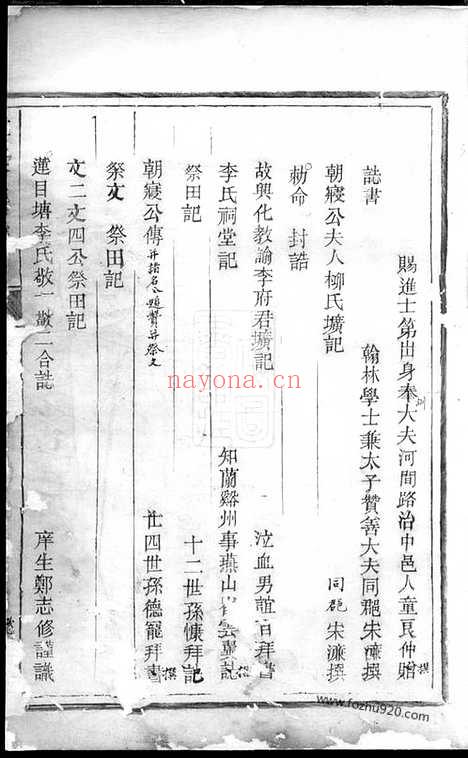 賜進士第出身奉訓大夫河間路治中邑人童良仲贈撰
誌書
翰林學士兼太子贊善大夫同郡朱濂撰
朝寢公夫人柳氏壙記
同郡 朱濂撰
勅命 封誥
故興化教諭李府君壙記
泣血男誼百拜書
李氏祠堂記
知蘭谿州事燕山
祭田記
十二世孫慷拜記撰
朝寢公傳并諸名公題贊并祭文
廿四世孫德寵拜書
祭文 祭田記
文二文四公祭田記
蓮目塘李氏敬一敬二合誌
庠生鄭志修謹識
nayona.cn
www.fozhu920.com